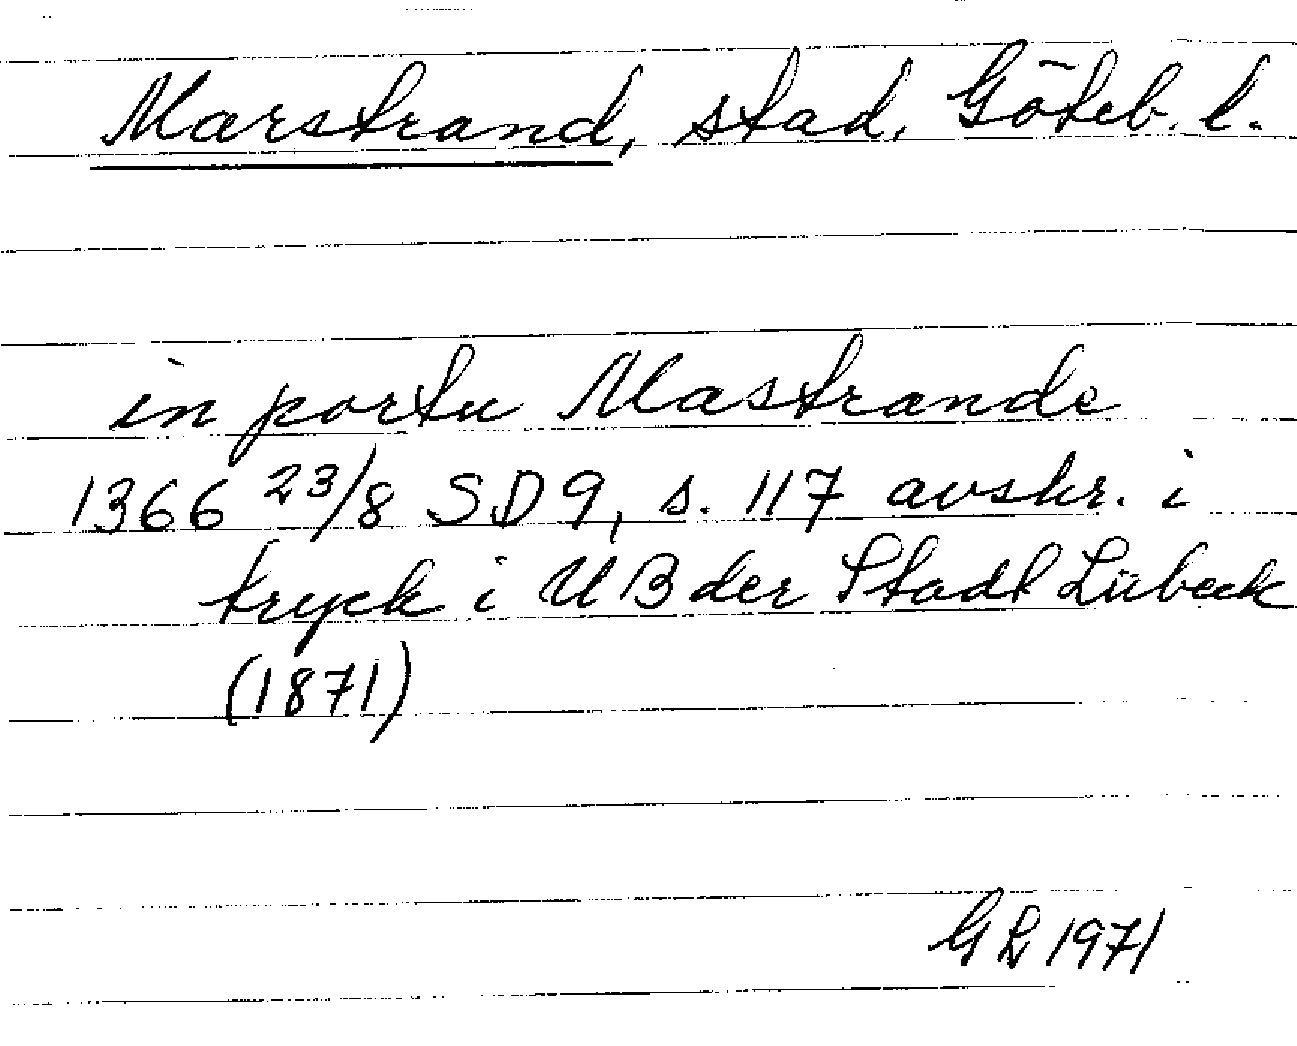 Marstrand, stad, Göteb. l.
in portu Mastrande
1366 23/8 SD 9, s. 117 avskr. i
tryck i UB der Stadt Lübeck
(1871)
GL 1971